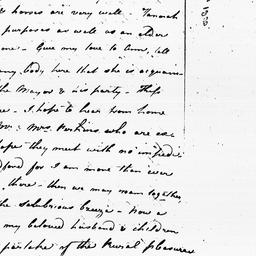 horses are very well -
purposes as well as an older
one - Give my love to Ann, tell
any body here that she is acquain
the Mayor & his party -
I hope to hear from home
Mrs. Perkins who are ex
hope they meet with no impedi
for I am more than ever
there - then we may roam together
the salubrious breeze - now a
my beloved husband & children
partake of the Rural pleasures